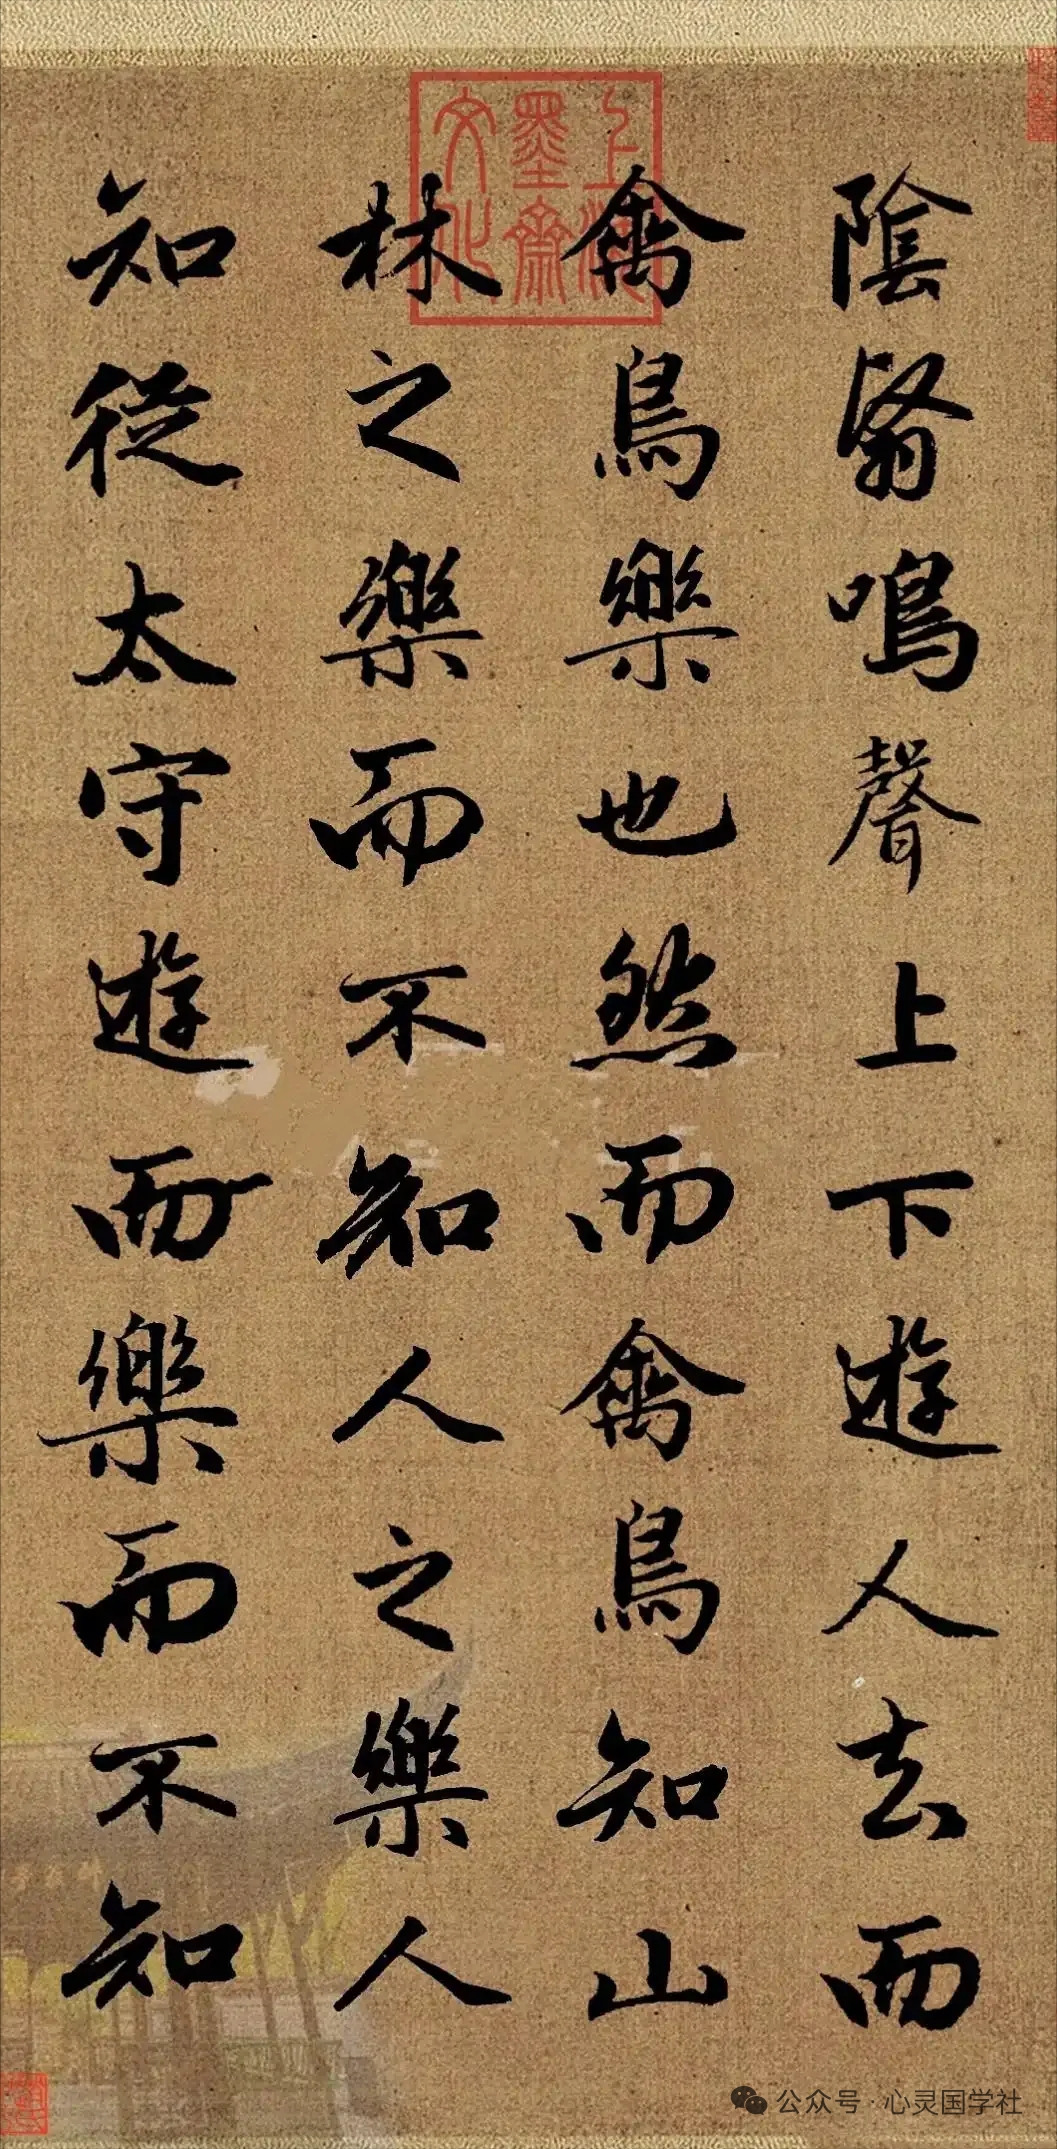 陰翳鳴聲上下遊人去而
禽鳥樂也然而禽鳥知山
林之樂而不知人之樂人
知從太守遊而樂而不知
上海墨齋文化
公众号·心灵国学社